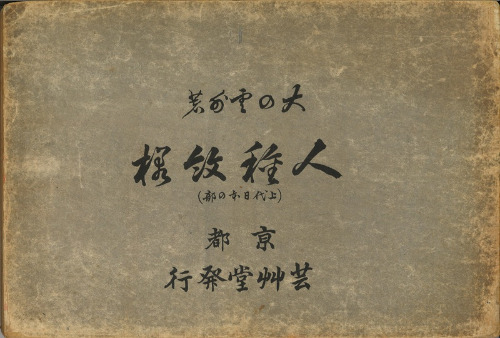 大の雲外著
人種紋様
(上代日本の部)
京都
芸艸堂發行